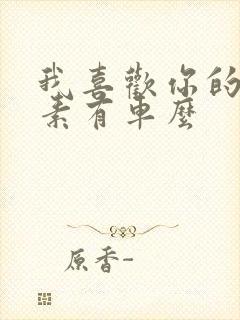 我喜歡你的
素有車麼
原香-